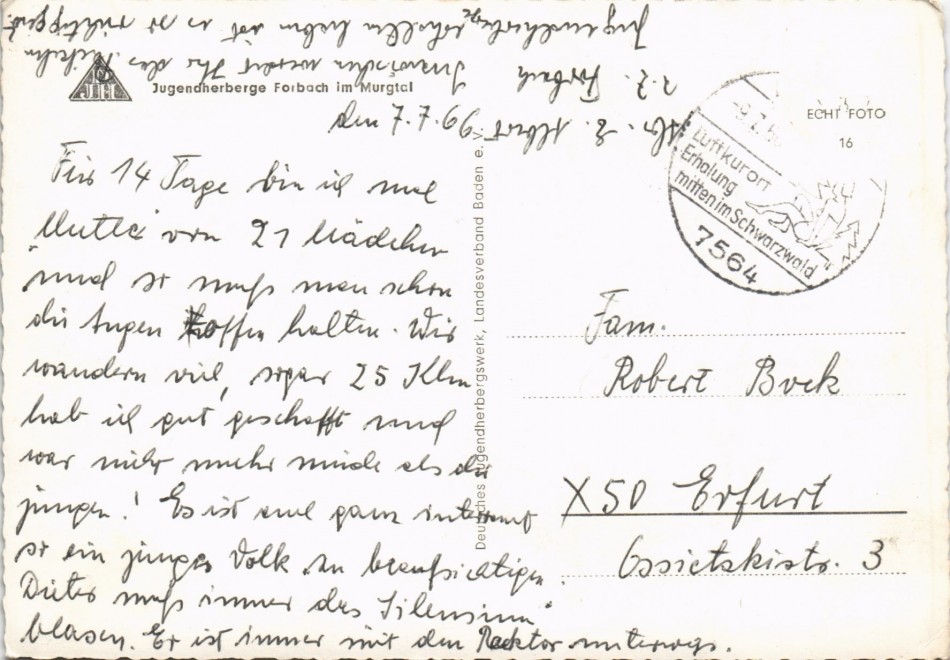 JH
Jugendherberge Forbach im Murgtal
den 7.7.69
Für 14 Tage bin ich mal
"Mutti" von 21 Mädchen
und so muß man schon
die Augen offen halten. Wir
wandern viel, sogar 25 Klm
hab ich gut geschafft und
war nicht mehr müde als die
jungen! Es ist mal ganz interessant
so ein junges Volk zu beaufsichtigen.
Dieter muß immer das "Silenzium"
blasen. Er ist immer mit dem Rektor unterwegs.
Inzwischen werdet Ihr das
Jugendherberge erhalten haben ist es so richtig
z.Z. Forbach
Deutsches Jugendherbergswerk, Landesverband Baden e. V.
ECHT FOTO
16
-9.7.
Luftkurort
Erholung
mitten im Schwarzwald
7564
Fam.
Robert Bock
X50 Erfurt
Ossietzkistr. 3